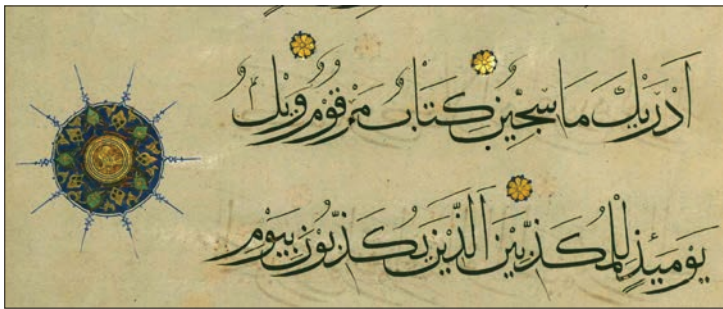 أَدْرَىٰكَ مَا سِجِّينٌ كِتَابٌ مَرْقُومٌ وَيْلٌ
يَوْمَئِذٍ لِلْمُكَذِّبِينَ الَّذِينَ يُكَذِّبُونَ بِيَوْمِ